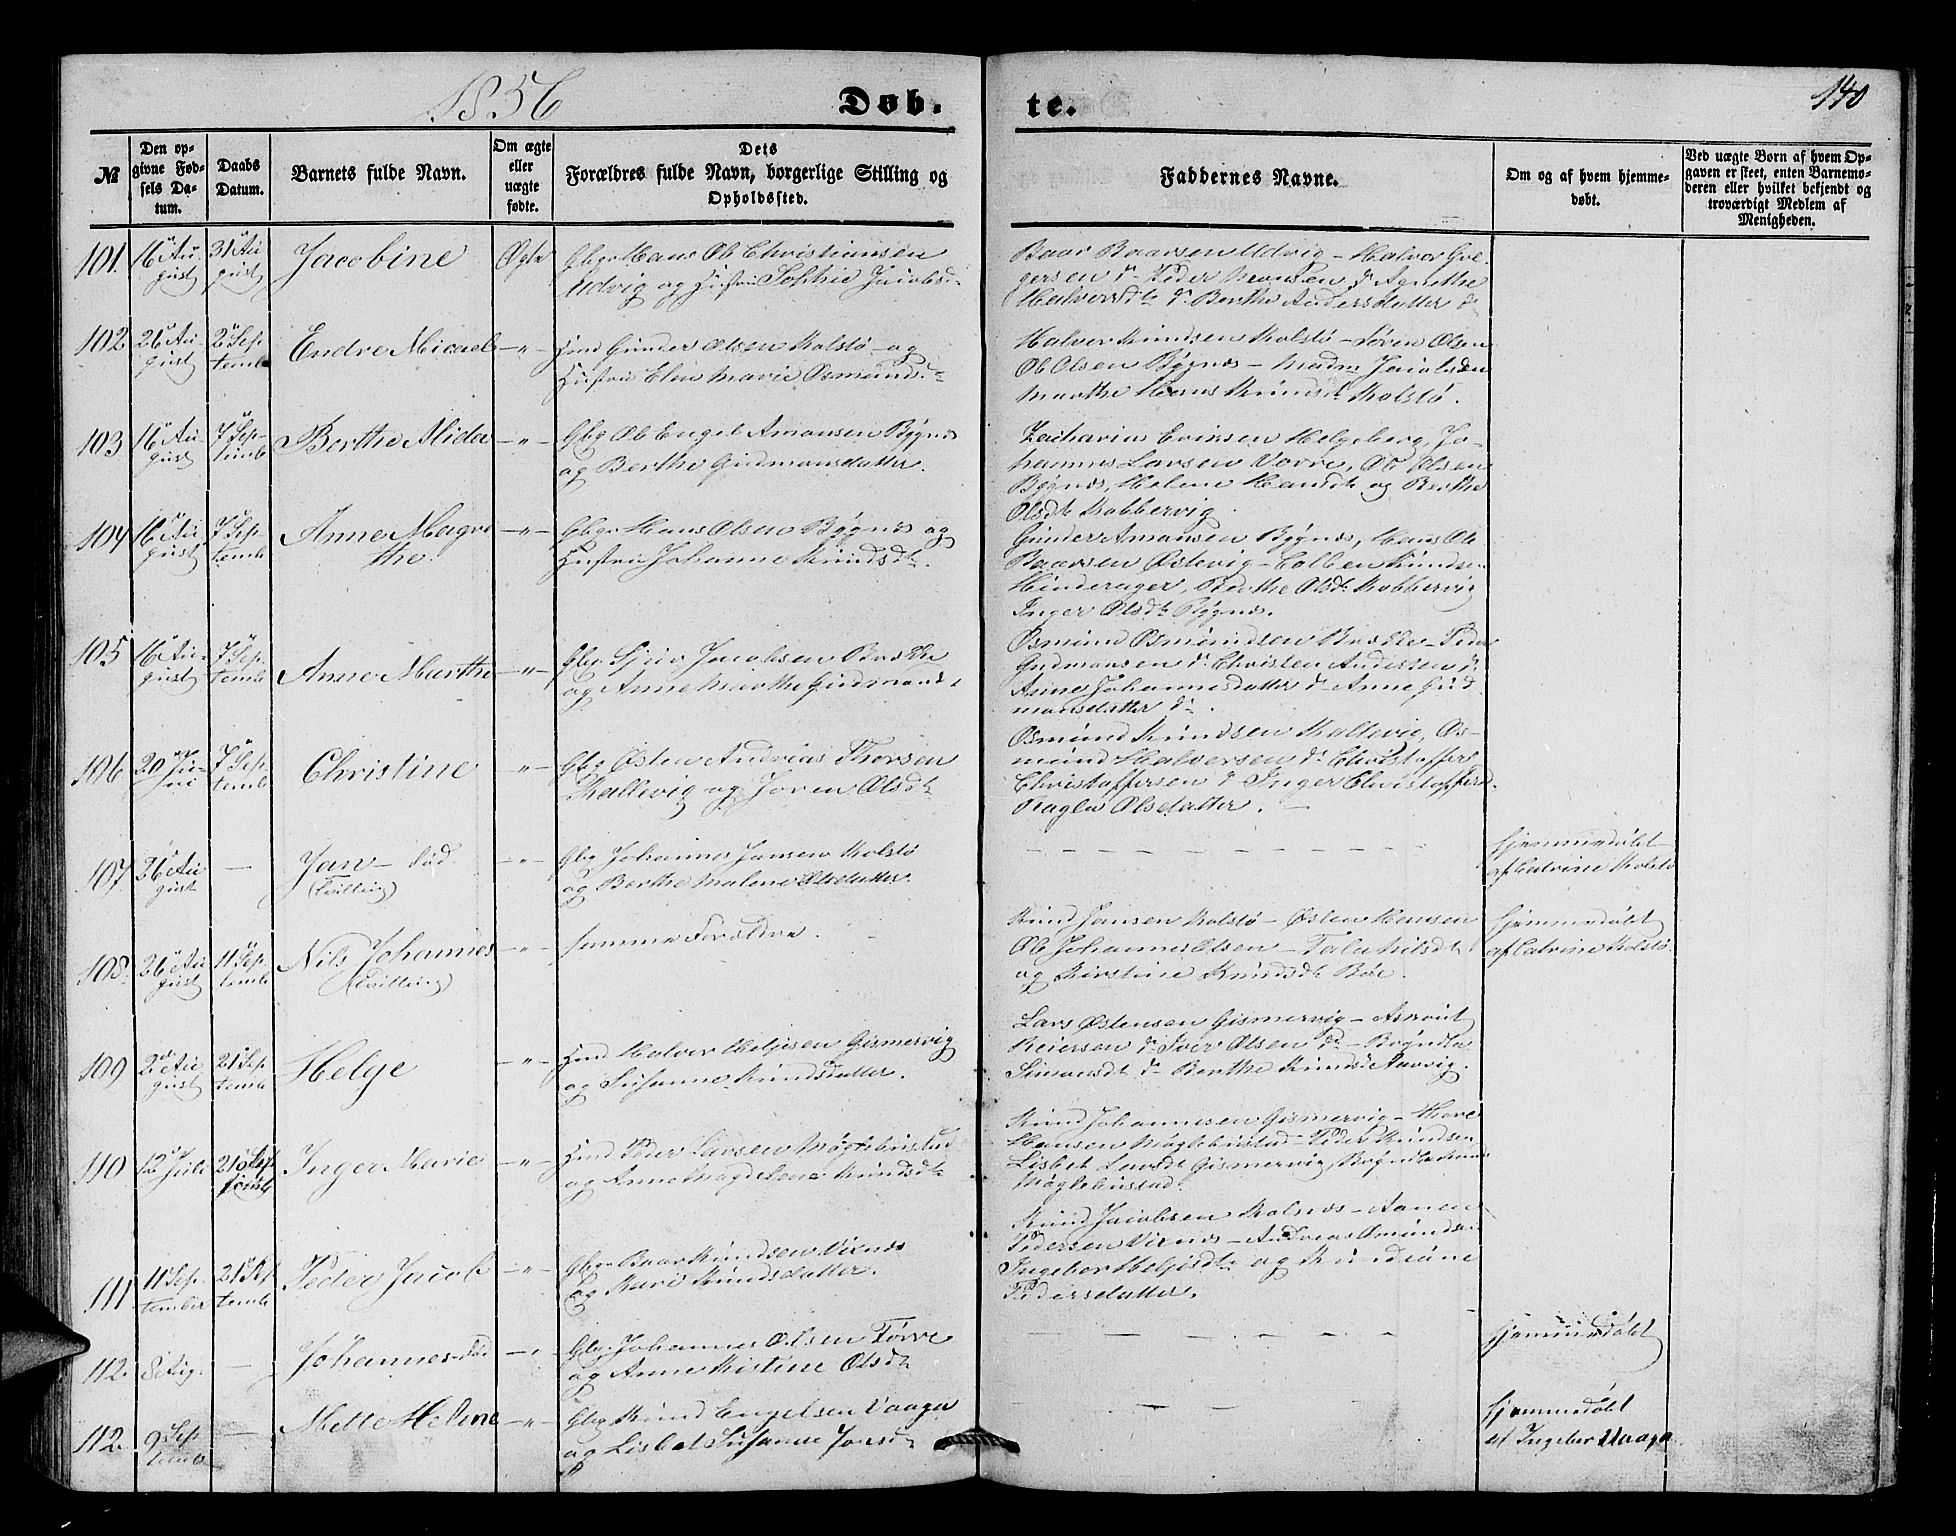 1856
Døb.
te.
140
№
Den op-
givne Fød-
sels Da-
tum.
Daabs
Datum.
Barnets fulde Navn.
Om ægte
eller
uægte
fødte.
Dets
Forældres fulde Navn, borgerlige Stilling og
Opholdssted.
Faddernes Navne.
Om og af hvem hjemme-
døbt.
Ved uægte Børn af hvem Op-
gaven er skeet, enten Barnemo-
deren eller hvilket bekjendt og
troværdigt Medlem af
Menigheden.
101.
16 Au-
gust
31 Au
gust
Jacobine
Ægte
Gbr Hans Ob Christiansen
Udvig og Hustru Sophie Jacobsd
Baar Baarsen Udvig - Halvor Gre-
gersen dº Peder Monsen dº Agnethe
Halvorsdt dº Berthe Andersdatter dº
102
26 Au-
gust
2 Sep
temb
Endre Micael
-"-
Hmd Gunder Olsen Kolstø og
Hustru Elen Marie Osmunds
Halvor Knudsen Kolstø - Søren Olsen
Ob Olsen Bøgnes - Madm Jacobsen
Marthe Hans Knudsdt Kolstø.
103
16 Au-
gust
7 Sep-
temb
Berthe Alida
-"-
Gbr Ob Engel Amonsen Bøgnes
og Berthe Gudmonsdatter.
Zacharias Ericsen Helgeberg, Jo-
hannes Larsen Vorre, Ob Olsen
Bøgnes, Helene Hansdt og Berthe
Olsdt Kobbervig.
104
16 Au-
gust
7 Sep
temb
Anne Magre
the.
-"-
Gbr Hans Olsen Bøgnes og
Hustru Johanne Knudsdt.
Gunder Amonsen Bøgnes, Hans Ob
Baarsen Østevig - Colben Knuds-
Hinderager, Berthe Olsdt Kobbervig
Inger Olsdt Bøgnes.
105
16 Au-
gust
7 Sep
temb
Anne Marthe
-"-
Gbr Sjur Jacobsen Bække
og Anne Marthe Gudmonsd
Osmund Osmundsen Bække - Peder
Gudmonsen dº Christen Andersen dº
Anne Johannesdatter dº Anne Gud
monsdatter dº.
106
20 Ju-
ni
7 Sep-
temb
Christine
-"-
Gbr Østen Andreas Thorsen
Kallevig og Joren Olsdt
Osmund Knudsen Kallevig, Os-
mund Halvorsen dº Christoffer
Christoffersen dº Inger Christoffersd
Ragla Olsdatter. -
107
26 Au
gust
-
Jan - død.
(Tvilling)
-"-
Gbr Johannes Jansen Kolstø
og Berthe Malene Olsdatter.
hjemmedøbt
af Catrine Kolstø
108.
26 Au
gust
11 Sep
temb
Nils Johannes
(Tvilling)
-"-
samme Forældre.
Knud Jansen Kolstø - Østen Hansen
Ob Johannes Olsen - Tale Nilsdt
og Kirstine Knudsdt Bøe.
hjemmedøbt
af Catrine Kolstø.
109
2 Au
gust
21 Sep
temb
Helge
-"-
Hmd Halvor Helgesen Gismervig
og Susanne Knudsdatter.
Lars Østensen Gismervig - Asmut
Reiersen dº Iver Olsen dº - Bryndla
Simonsdt dº Berthe Knudsd Aarvig.
110
12 Juli
21 Sep
temb
Inger Marie
-"-
Hmd Peder Larsen Møglebustad
og Anne Magdelene Knudsdt
Knud Johannesen Gismervig - Thore
Hansen Møglebustad - Peder Knudsen
Lisbet Larsdt Gismervig, Bryndla Knuds
Møglebustad.
111
11 Sep-
tember
21 Sep
temb
Peder Jacob
-"-
Gbr Baar Knudsen Vixnes
og Kari Knudsdatter.
Knud Jacobsen Kolnes - Aanen
Pedersen Vixnes - Andreas Omunds
Ingebor Helgesdt og Knudiane
Pedersdatter.
112.
8 Aug.
-
Johannes død
-"-
Gbr. Johannes Olsen Førre
og Anne Kistine Olsdt
hjemmedøbt
112.
9 Sep
temb
-
Mette Heline
-"-
Gbr Knud Engelsen Vaaga
og Lisbet Susanne Jonsd
hjemmedøbt
af Ingebor Vaaga.